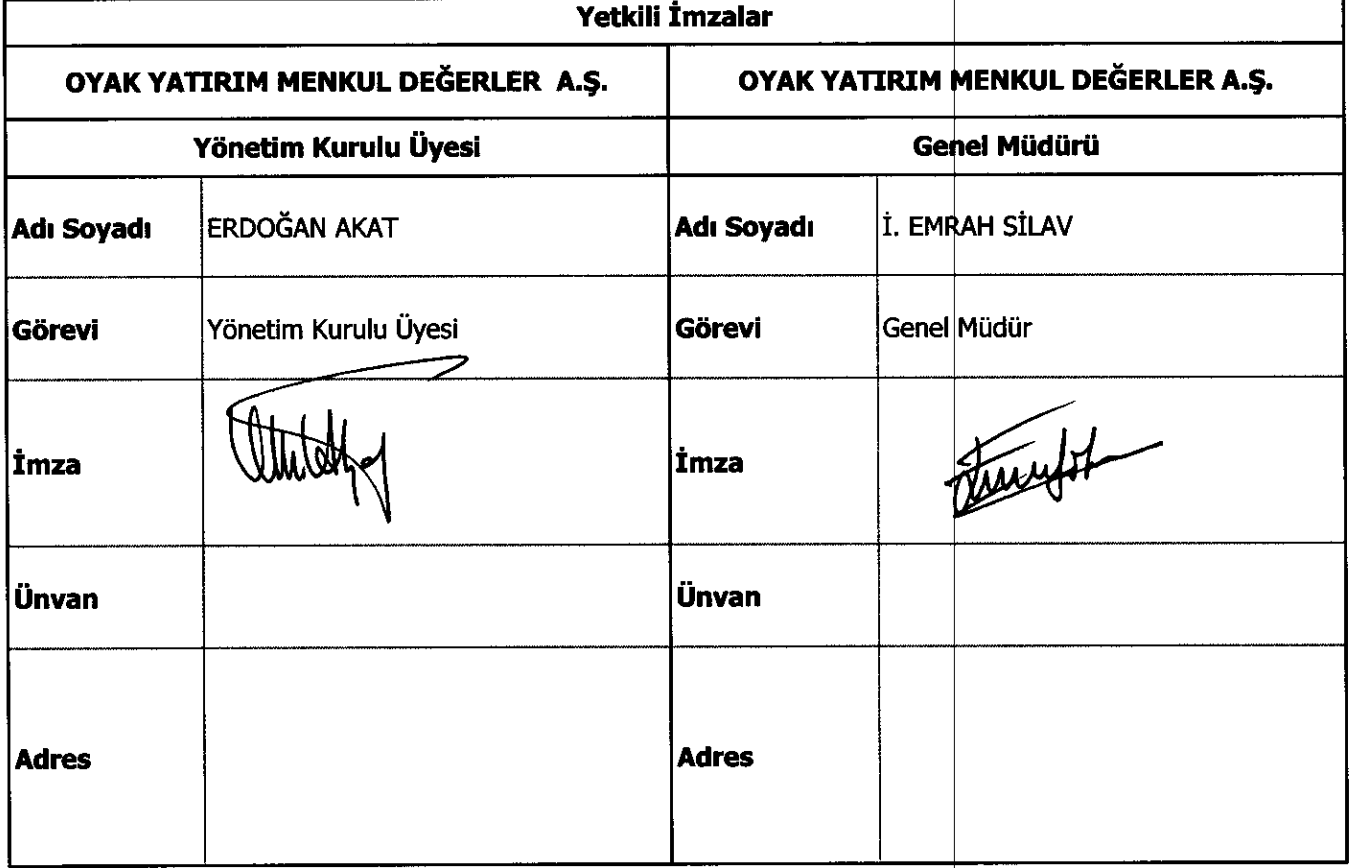 Yetkili İmzalar
OYAK YATIRIM MENKUL DEĞERLER A.Ş. OYAK YATIRIM MENKUL DEĞERLER A.Ş.
Yönetim Kurulu Üyesi Genel Müdürü
Adı Soyadı ERDOĞAN AKAT Adı Soyadı İ. EMRAH SİLAV
Görevi Yönetim Kurulu Üyesi Görevi Genel Müdür
İmza İmza
Ünvan Ünvan
Adres Adres